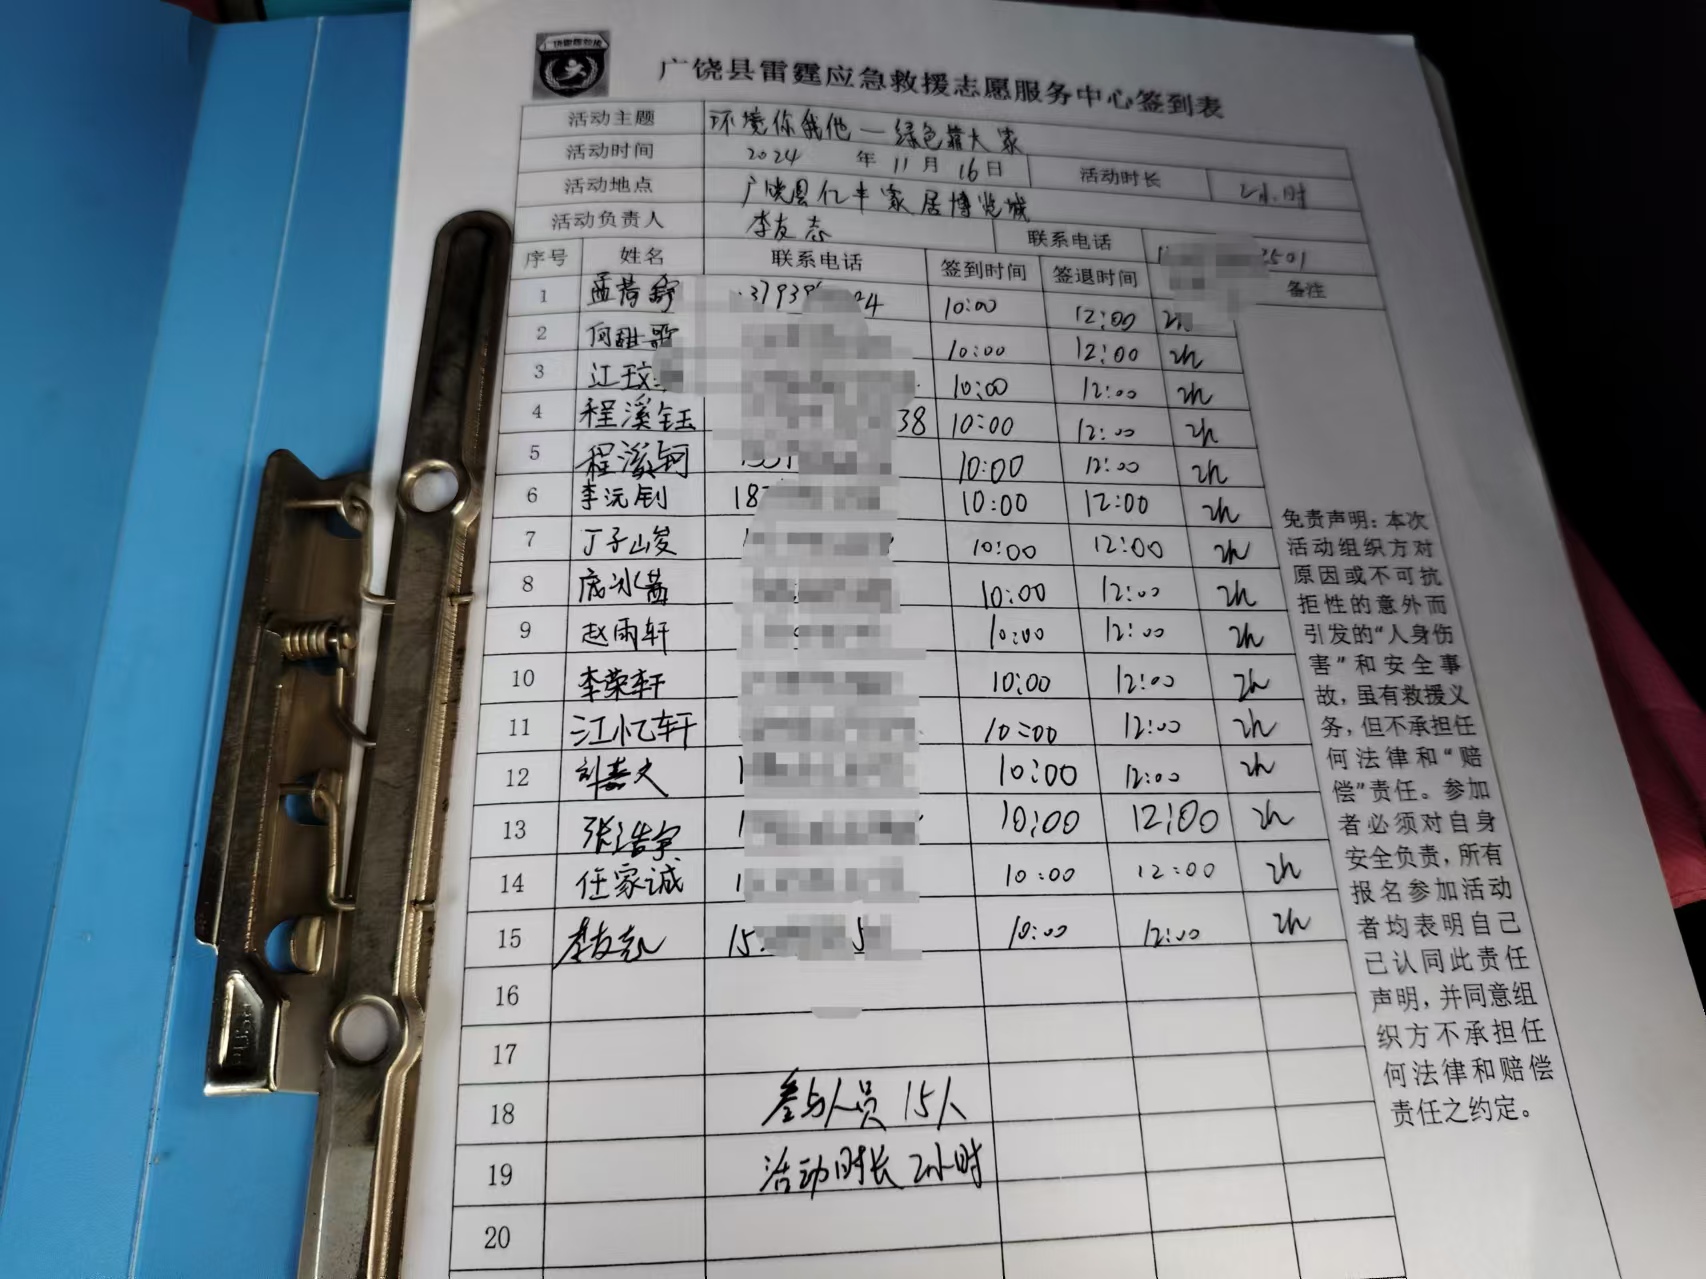 广饶县雷霆应急救援志愿服务中心签到表
活动主题 环境你我他—绿色靠大家
活动时间 2024 年 11 月 16 日 活动时长 2小时
活动地点 广饶县亿丰家居博览城
活动负责人 李友志 联系电话 3501
序号 姓名 联系电话 签到时间 签退时间 备注
1 10:00 12:00
2 何甜歌 10:00 12:00 2h
3 江玟 10:00 12:00 2h
4 程溪钰 38 10:00 12:00 2h
5 程溪钶 10:00 12:00 2h
6 李沅钊 18 10:00 12:00 2h
7 丁子峻 10:00 12:00 2h
8 底冰茜 10:00 12:00 2h
9 赵雨轩 10:00 12:00 2h
10 李荣轩 10:00 12:00 2h
11 江忆轩 10:00 12:00 2h
12 10:00 12:00 2h
13 张浩宇 10:00 12:00 2h
14 任家诚 10:00 12:00 2h
15 李友志 15 5 10:00 12:00 2h
16
17
18 参与人员 15人
19 活动时长 2小时
20
免责声明：本次
活动组织方对
原因或不可抗
拒性的意外而
引发的“人身伤
害”和安全事
故，虽有救援义
务，但不承担任
何法律和“赔
偿”责任。参加
者必须对自身
安全负责，所有
报名参加活动
者均表明自己
已认同此责任
声明，并同意组
织方不承担任
何法律和赔偿
责任之约定。